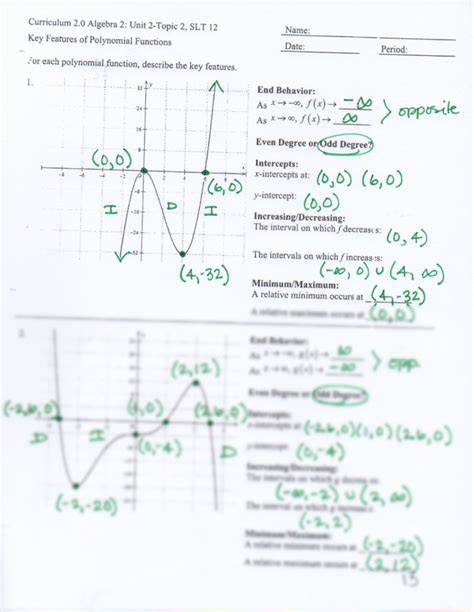 Curriculum 2.0 Algebra 2: Unit 2-Topic 2, SLT 12
Name:
Key Features of Polynomial Functions
Date: Period:
For each polynomial function, describe the key features.
1.
End Behavior:
As x → -∞, f(x) → -∞
As x → ∞, f(x) → ∞
> opposite
Even Degree or Odd Degree?
Intercepts:
x-intercepts at: (0,0) (6,0)
y-intercept: (0,0)
Increasing/Decreasing:
The interval on which f decreases: (0,4)
The intervals on which f increases:
(-∞, 0) ∪ (4, ∞)
Minimum/Maximum:
A relative minimum occurs at (4,-32)
A relative maximum occurs at (0,0)
y
32
24
16
8
-4 -2 2 4 6 8
(0,0)
(6,0)
I D I
-32
(4,-32)
2.
End Behavior:
> opp.
Even Degree or Odd Degree?
Intercepts:
x-intercepts at: (-2.6,0) (1,0) (2.6,0)
y-intercept: (0,-4)
Increasing/Decreasing:
(-∞,-2) ∪ (2,∞)
(-2,2)
Minimum/Maximum:
A relative minimum occurs at (-2,-20)
A relative maximum occurs at (2,12)
(2,12)
(-2.6,0) (1,0) (2.6,0)
D I D
(0,-4)
(-2,-20)
13